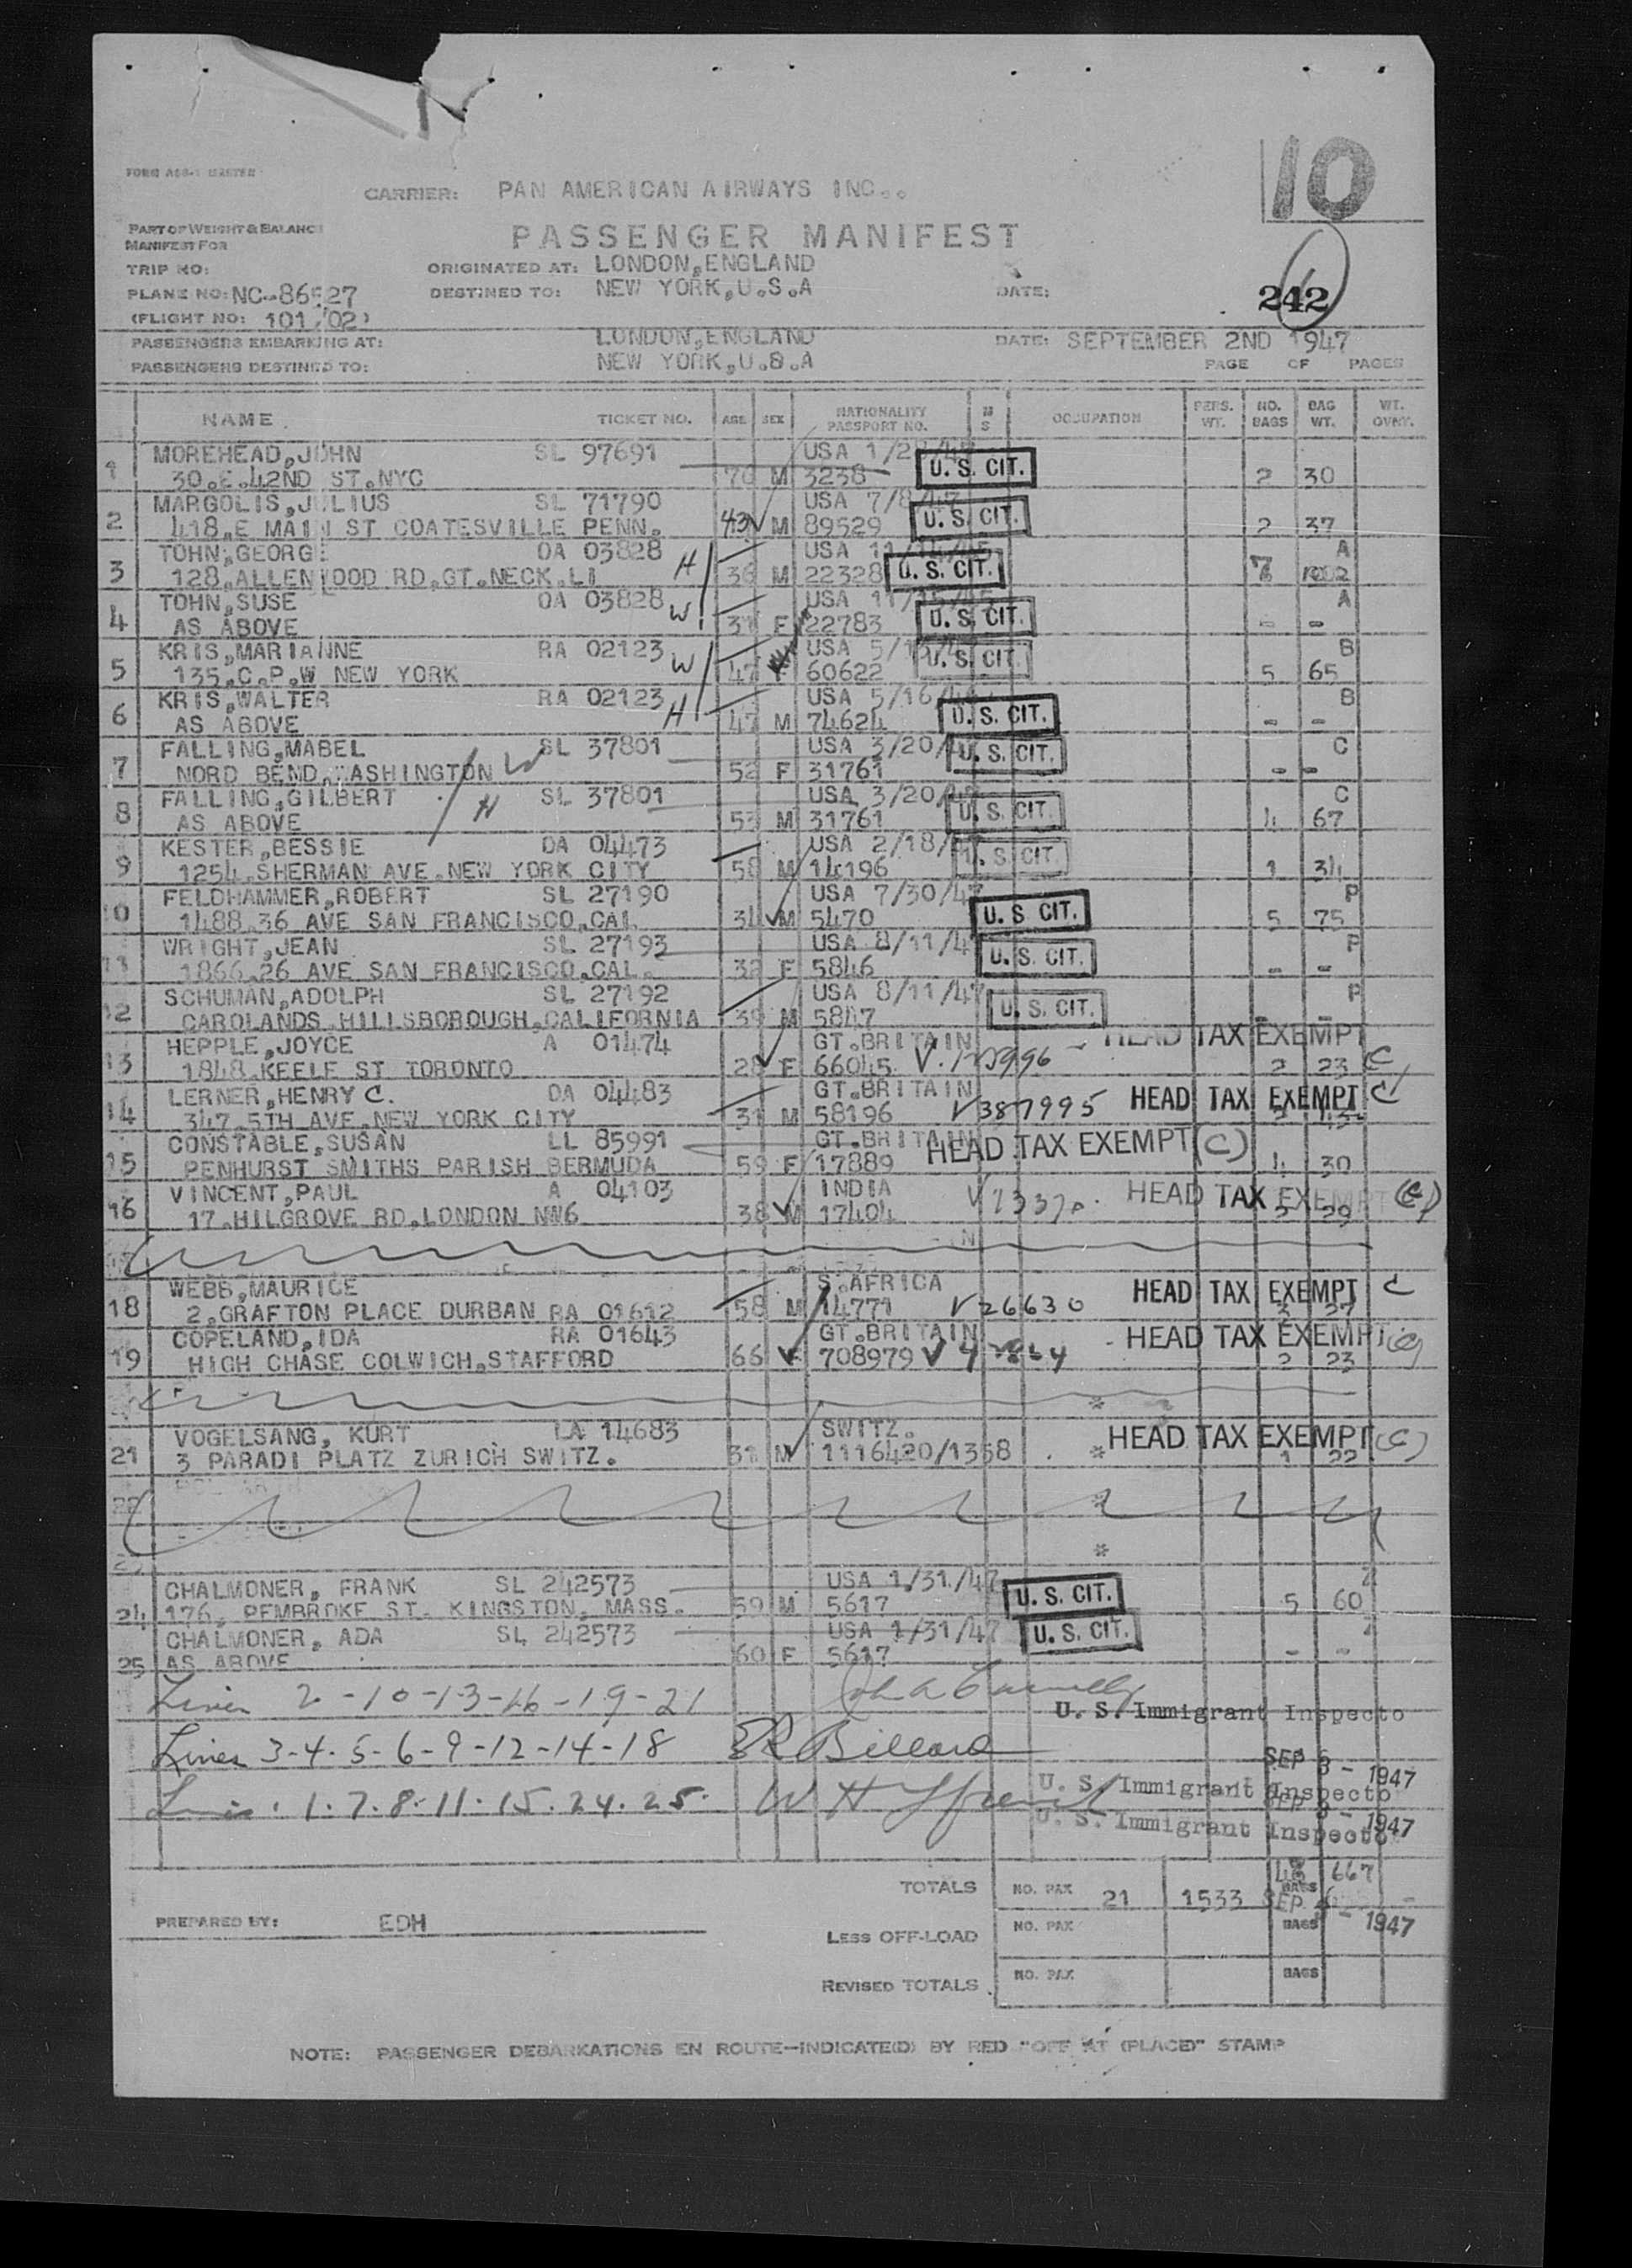 10
FORM
CARRIER: PAN AMERICAN AIRWAYS INC..
PART OF WEIGHT & BALANCE
MANIFEST FOR
PASSENGER MANIFEST
TRIP NO:
ORIGINATED AT: LONDON,ENGLAND
PLANE NO: NC-86527 DESTINED TO: NEW YORK,U.S.A DATE: 242
(FLIGHT NO: 101/02)
PASSENGERS EMBARKING AT: LONDON,ENGLAND DATE: SEPTEMBER 2ND 1947
PASSENGERS DESTINED TO: NEW YORK,U.S.A PAGE OF PAGES
NAME TICKET NO. AGE SEX NATIONALITY PASSPORT NO. M S OCCUPATION PERS. WT. NO. BAGS BAG WT. WT. OVNT.
MOREHEAD,JOHN SL 97691 USA
1 30.E.42ND ST.NYC 70 M 3238 U.S. CIT. 2 30
MARGOLIS,JULIUS SL 71790 USA 7/8/47
2 418.E MAIN ST COATESVILLE PENN. 43 M 89529 U.S. CIT. 2 37
TOHN,GEORGE OA 03828 H USA A
3 128.ALLENWOOD RD.GT.NECK.LI 36 M 22328 U.S. CIT. 7
TOHN,SUSE OA 03828 W USA A
4 AS ABOVE 31 F 22783 U.S. CIT. - -
KRIS,MARIANNE RA 02123 W USA B
5 135.C.P.W NEW YORK 47 F 60622 U.S. CIT. 5 65
KRIS,WALTER RA 02123 H USA 5/16/ B
6 AS ABOVE 47 M 74624 U.S. CIT. - -
FALLING,MABEL SL 37801 W USA 3/20/ C
7 NORD BEND.WASHINGTON 52 F 31761 U.S. CIT. - -
FALLING,GILBERT H SL 37801 USA 3/20/ C
8 AS ABOVE 53 M 31761 U.S. CIT. 4 67
KESTER,BESSIE OA 04473 USA 2/18/
9 1254.SHERMAN AVE.NEW YORK CITY 58 M 14196 U.S. CIT. 1 34
FELDHAMMER,ROBERT SL 27190 USA 7/30/47 P
10 1488.36 AVE SAN FRANCISCO.CAL. 34 M 5470 U.S. CIT. 5 75
WRIGHT,JEAN SL 27193 USA 8/11/47 P
1866.26 AVE SAN FRANCISCO.CAL. 32 F 5846 U.S. CIT. - -
SCHUMAN,ADOLPH SL 27192 USA 8/11/47 P
12 CAROLANDS.HILLSBOROUGH,CALIFORNIA 39 M 5847 U.S. CIT. -
HEPPLE,JOYCE A 01474 GT.BRITAIN HEAD TAX EXEMPT
13 1848.KEELE ST TORONTO 28 F 66045 2 23 C
LERNER,HENRY C. OA 04483 GT.BRITAIN
14 347.5TH AVE.NEW YORK CITY 31 M 58196 V387995 HEAD TAX EXEMPT C
CONSTABLE,SUSAN LL 85991 GT.BRITAIN HEAD TAX EXEMPT (C)
15 PENHURST SMITHS PARISH BERMUDA 59 F 17889 4 30
VINCENT,PAUL A 04103 INDIA HEAD TAX EXEMPT (C)
16 17.HILGROVE RD,LONDON NW6 38 M 17404 2 29
WEBB,MAURICE S.AFRICA HEAD TAX EXEMPT C
18 2.GRAFTON PLACE DURBAN RA 01612 58 M 14771 V26630 27
COPELAND,IDA RA 01643 GT.BRITAIN HEAD TAX EXEMPT (C)
19 HIGH CHASE COLWICH,STAFFORD 66 708979 2 23
*
VOGELSANG, KURT LA 14683 SWITZ. HEAD TAX EXEMPT (C)
21 3 PARADI PLATZ ZURICH SWITZ. 31 M 1116420/1358 * 1 22
22 *
*
CHALMONER, FRANK SL 242573 USA 1/31/47 Z
24 176, PEMBROKE ST. KINGSTON, MASS. 59 M 5617 U.S. CIT. 5 60
CHALMONER, ADA SL 242573 USA 1/31/47 Z
25 AS ABOVE 60 F 5617 U.S. CIT. - -
Lines 2-10-13-16-19-21 U. S. Immigrant Inspecto
Lines 3-4-5-6-9-12-14-18 Billard SEP 3 - 1947
Lines 1.7.8.11.15.24.25. W H U. S. Immigrant Inspecto
U. S. Immigrant Inspecto 1947
TOTALS NO. PAX 21 1533 BAGS 667
SEP 1947
PREPARED BY: EDH
LESS OFF-LOAD NO. PAX BAGS
REVISED TOTALS NO. PAX BAGS
NOTE: PASSENGER DEBARKATIONS EN ROUTE—INDICATE(D) BY RED "OFF AT (PLACE)" STAMP